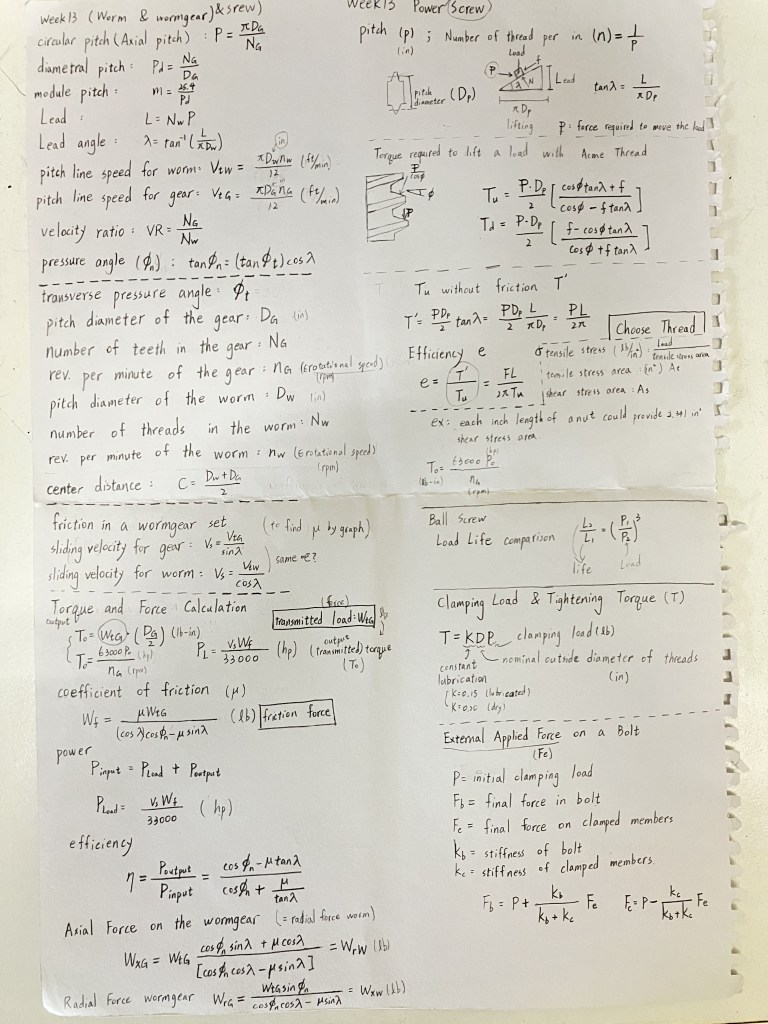 Week13 (Worm & wormgear) & srew)
circular pitch (Axial pitch) : P = πDG/NG
diametral pitch : Pd = NG/DG
module pitch : m = 25.4/Pd
Lead : L = NwP
Lead angle : λ = tan⁻¹(L/πDw)
(in)
pitch line speed for worm : Vtw = πDwnw/12 (ft/min)
pitch line speed for gear : VtG = πDGnG/12 (ft/min)
velocity ratio : VR = NG/Nw
pressure angle (ϕn) : tanϕn = (tanϕt)cosλ
transverse pressure angle : ϕt
pitch diameter of the gear : DG (in)
number of teeth in the gear : NG
rev. per minute of the gear : nG (rotational speed) (rpm)
pitch diameter of the worm : Dw (in)
number of threads in the worm : Nw
rev. per minute of the worm : nw (rotational speed) (rpm)
center distance : C = (Dw+DG)/2
friction in a wormgear set (to find μ by graph)
sliding velocity for gear : Vs = VtG/sinλ
sliding velocity for worm : Vs = Vtw/cosλ
same
Torque and Force Calculation
(force)
transmitted load = WtG lb
output
To = WtG · (DG/2) (lb-in)
To = 63000 Po (hp)/nG (rpm)
PL = VsWf/33000 (hp)
output (transmitted) torque (To)
coefficient of friction (μ)
Wf = μWtG/((cosλ)cosϕn - μsinλ) (lb) friction force
power
Pinput = PLoad + Poutput
PLoad = VsWf/33000 (hp)
efficiency
η = Poutput/Pinput = (cosϕn - μtanλ)/(cosϕn + μ/tanλ)
Axial Force on the wormgear (= radial force worm)
WxG = WtG (cosϕn sinλ + μcosλ)/[cosϕn cosλ - μsinλ] = WrW (lb)
Radial Force wormgear WrG = WtG sinϕn/(cosϕn cosλ - μsinλ) = WxW (lb)
Week13 Power (Screw)
pitch (p) ; Number of thread per in (n) = 1/P
(in)
pitch diameter (Dp)
Load
f
P
λ
N
Lead
πDp
lifting
tanλ = L/πDp
P : force required to move the load
Torque required to lift a load with Acme Thread
P/cosϕ
ϕ
P
Tu = P·Dp/2 [(cosϕtanλ + f)/(cosϕ - f tanλ)]
Td = P·Dp/2 [(f - cosϕtanλ)/(cosϕ + f tanλ)]
Tu without friction T'
T' = PDp/2 tanλ = PDp/2 L/πDp = PL/2π
Choose Thread
Efficiency e
e = T'/Tu = FL/2πTu
σ tensile stress (lb/in²) : load/tensile stress area
tensile stress area : (in²) At
shear stress area : As
ex: each inch length of a nut could provide 2.341 in²
shear stress area
To = 63000 Po (hp)/nG (rpm)
(lb-in)
Ball Screw
Load Life comparison L2/L1 = (P1/P2)³
life Load
Clamping Load & Tightening Torque (T)
T = KDP clamping load (lb)
constant nominal outside diameter of threads
lubrication (in)
K=0.15 (lubricated)
K=0.20 (dry)
External Applied Force on a Bolt
(Fe)
P = initial clamping load
Fb = final force in bolt
Fc = final force on clamped members
kb = stiffness of bolt
kc = stiffness of clamped members
Fb = P + kb/(kb + kc) Fe Fc = P - kc/(kb+kc) Fe